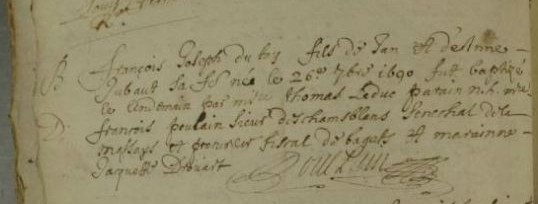 B françois Joseph du foy fils de Jan et de Anne
Jubaut sa fe née le 26e 7bre 1690 fut baptizé
le lendemain par mre Thomas Leduc parain n. h. mre
françois poulain sieur deschamsblans senechal de la
massays et procureur fiscal de baguts et marainne
Jaquette Drouart